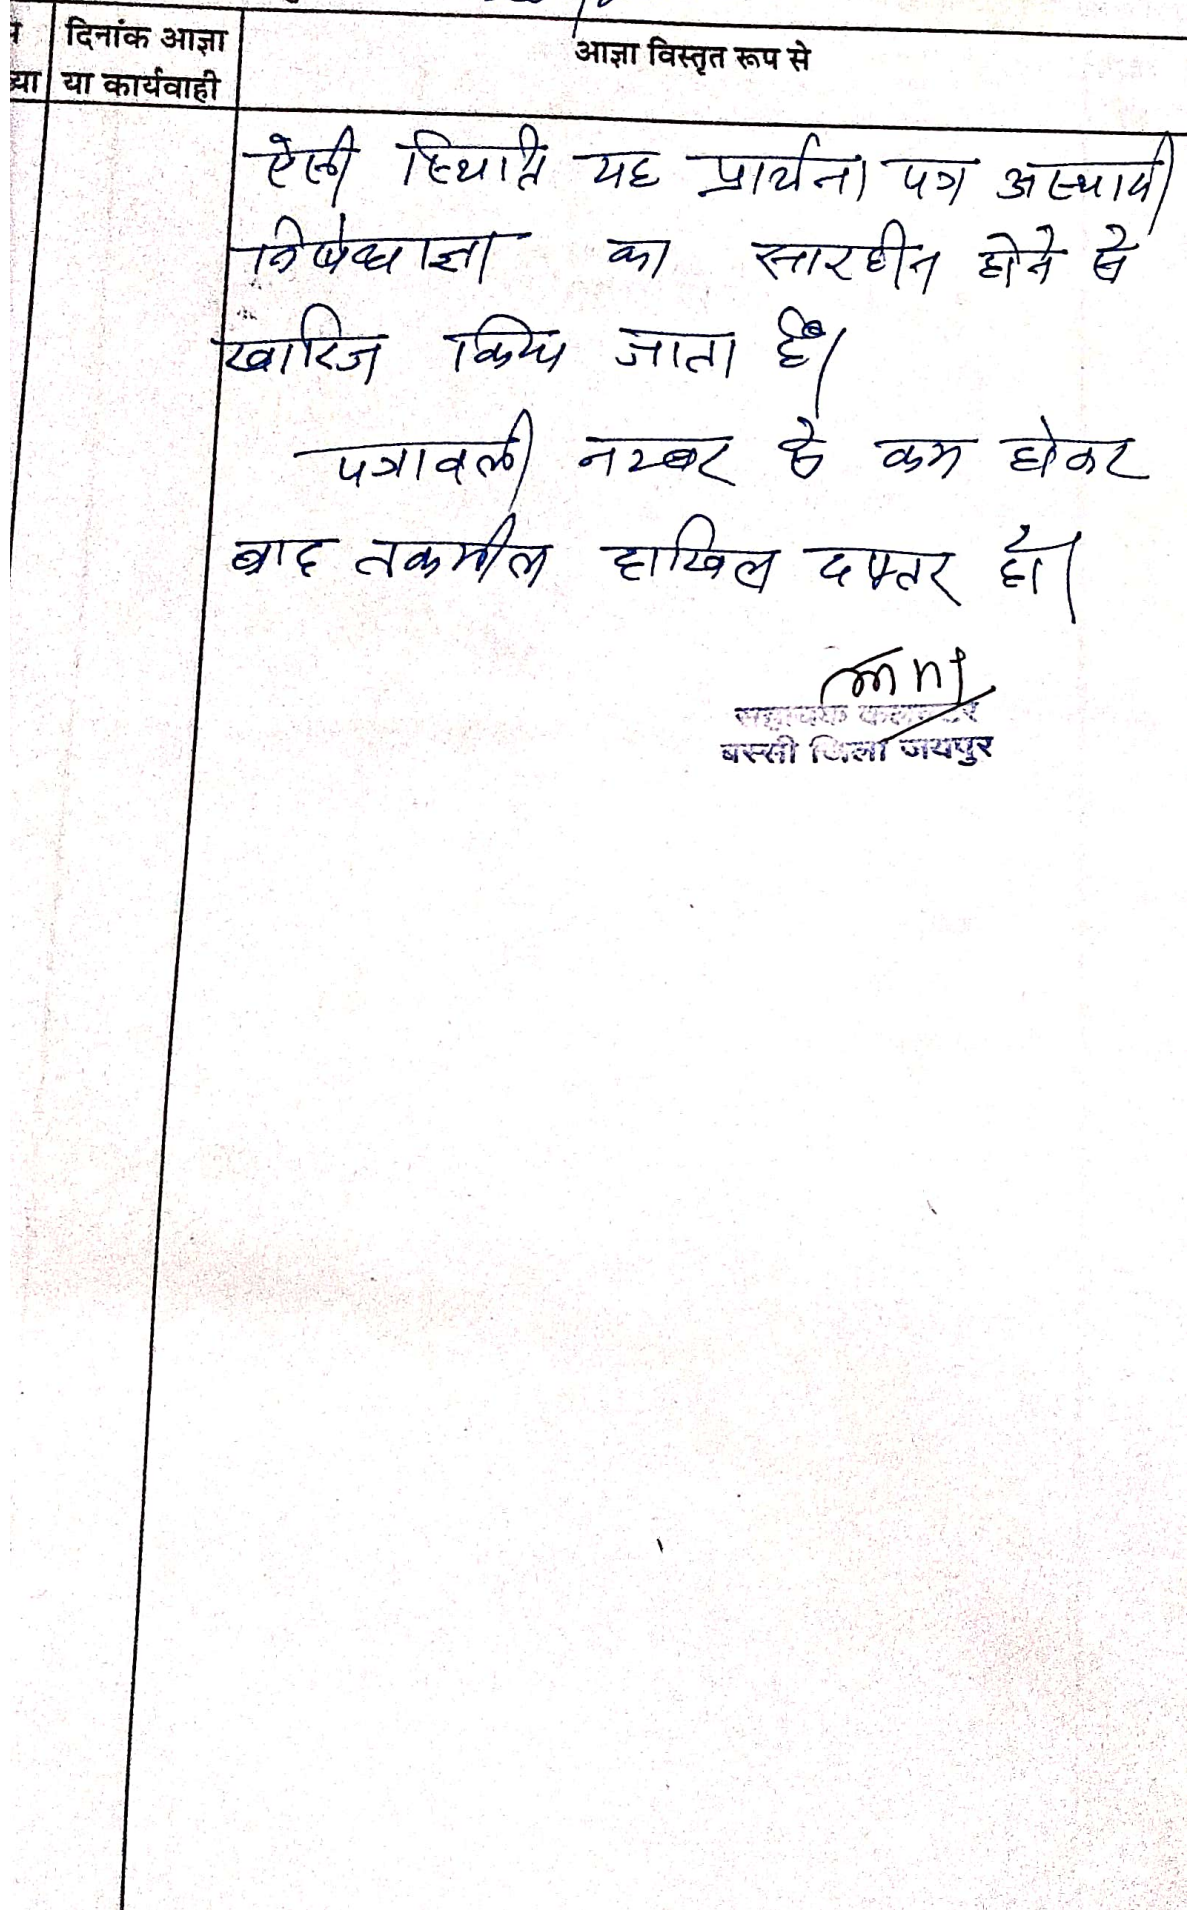 दिनांक आज्ञा
या कार्यवाही
आज्ञा विस्तृत रूप से
ऐसी स्थिति यह प्रार्थना पत्र अस्थायी
निषेधाज्ञा का सारहीन होने से
खारिज किया जाता है।
पत्रावली नम्बर से कम होकर
बाद तकमील दाखिल दफ्तर हो।
सहायक कलक्टर
बस्सी जिला जयपुर